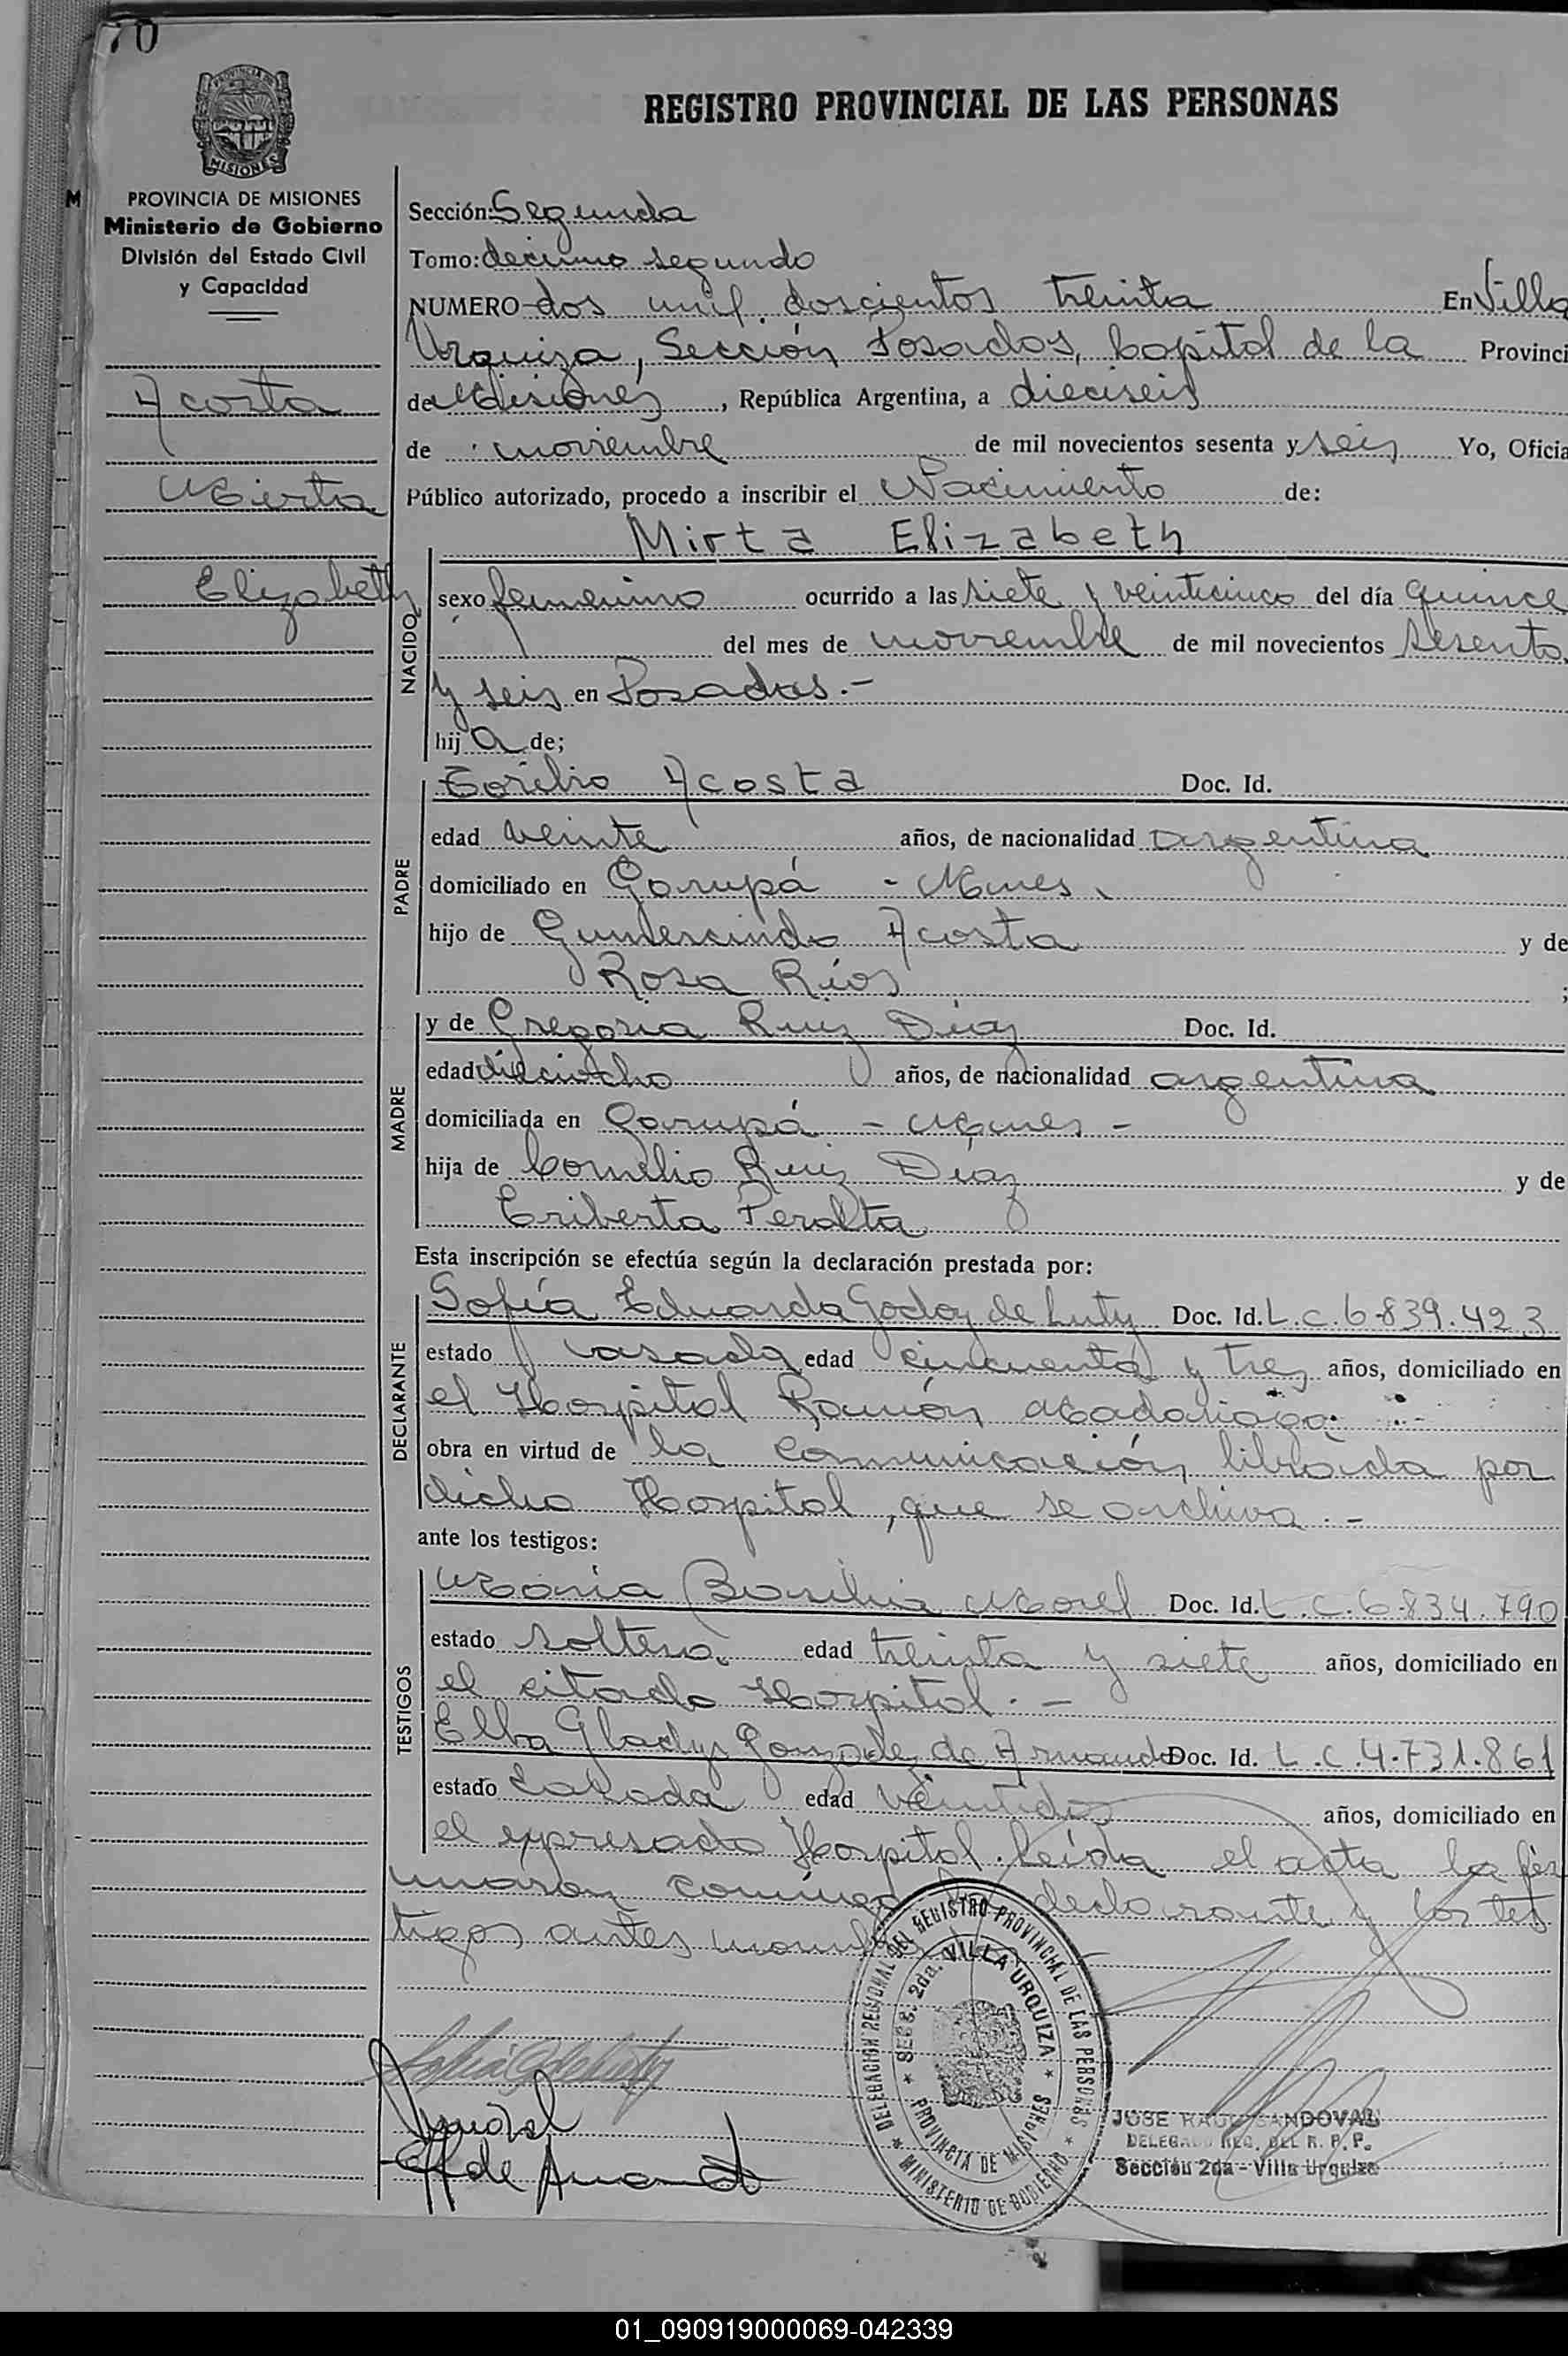 70
REGISTRO PROVINCIAL DE LAS PERSONAS
MISIONES
M
PROVINCIA DE MISIONES
Ministerio de Gobierno
División del Estado Civil
y Capacidad
Acosta
Mirta
Elizabeth
Sección: Segunda
Tomo: decimo segundo
NUMERO dos mil doscientos treinta En Villa
Urquiza, Sección Posadas, Capital de la Provinci
de Misiones, República Argentina, a dieciseis
de noviembre de mil novecientos sesenta y seis Yo, Oficia
Público autorizado, procedo a inscribir el Nacimiento de:
Mirta Elizabeth
NACIDO
sexo femenino ocurrido a las siete y veinticinco del día quince
del mes de noviembre de mil novecientos sesenta
y seis en Posadas.-
hija de;
PADRE
Toribio Acosta Doc. Id.
edad veinte años, de nacionalidad argentina
domiciliado en Garupá - Mnes.
hijo de Gumercindo Acosta y de
Rosa Ríos ;
MADRE
y de Gregoria Ruiz Díaz Doc. Id.
edad dieciocho años, de nacionalidad argentina
domiciliada en Garupá - Mnes -
hija de Cornelio Ruiz Díaz y de
Eriberta Peralta
Esta inscripción se efectúa según la declaración prestada por:
DECLARANTE
Sofía Eduarda Godoy de Luty Doc. Id. L.C.6.839.423
estado casada edad cincuenta y tres años, domiciliado en
el Hospital Ramón Madariaga.-
obra en virtud de la comunicación librada por
dicho Hospital, que se archiva.-
ante los testigos:
TESTIGOS
María Basilia Morel Doc. Id. L.C.6.834.790
estado soltera edad treinta y siete años, domiciliado en
el citado Hospital.-
Elba Gladys Gonzalez de Armando Doc. Id. L.C.4.731.861
estado casada edad veintidos años, domiciliado en
el expresado Hospital. Leída el acta la fir
maron conmigo la declarante y los tes
tigos antes nombrados
DELEGACION REGIONAL DEL REGISTRO PROVINCIAL DE LAS PERSONAS
SECC. 2da. VILLA URQUIZA
PROVINCIA DE MISIONES
MINISTERIO DE GOBIERNO
JOSE RAUL SANDOVAL
DELEGADO REG. DEL R. P. P.
Sección 2da - Villa Urquiza
01_090919000069-042339